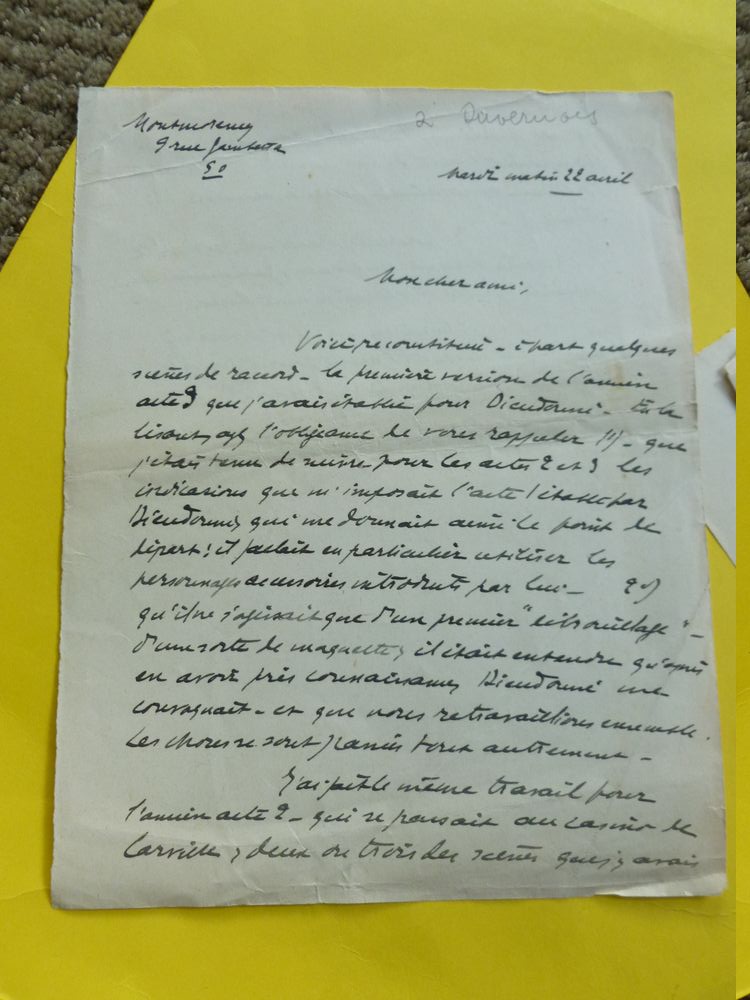 Montmorency
9 rue Gambetta
S.O
à Duvernois
Mardi matin 22 avril
Mon cher ami,
Voici reconstitué - à part quelques
scènes de raccord - la première version de l'ancien
acte 3 que j'avais établi pour Dieudonné. En le
lisant, ayez l'obligeance de vous rappeler 1º) - que
j'étais tenu de suivre pour les actes 2 et 3 les
indications que m'imposait l'acte I établi par
Dieudonné, qui me donnait ainsi le point de
départ ; il fallait en particulier utiliser les
personnages accessoires introduits par lui - 2º)
qu'il ne s'agissait que d'un premier "débrouillage" -
d'une sorte de maquette, il était entendu qu'après
en avoir pris connaissance, Dieudonné me
convoquait - et que nous retravaillions ensemble.
Les choses se sont passées tout autrement -
J'ai fait le même travail pour
l'ancien acte 2 - qui se passait au casino de
deux ou trois des scènes que j'y avais